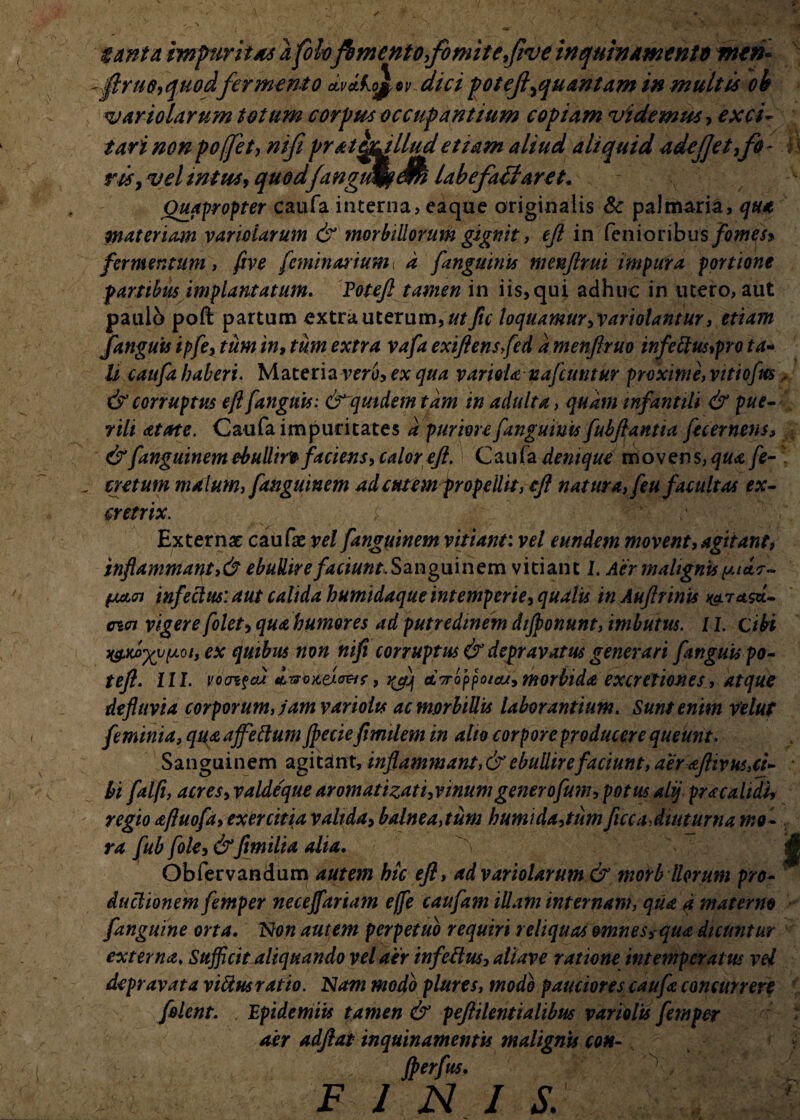 tanta impuritas à ſolo fomento, fomite, ſive inquinamento men-
ſtruo, quod fermento dici poteſt, quantam in multis ob
variolarum totum corpus occupantium copiam videmus, exci-
tari non poſſet, niſi præter illud etiam aliud aliquid adeſſet, fo-
ris, vel intus, quod ſanguinem labefactaret.
Quapropter cauſa interna, eaque originalis & palmaria, quæ
materiam variolarum & morbillorum gignit, eſt in ſenioribus fomes,
fermentum, ſive ſeminarium à ſanguinis menſtrui impura portione
partibus implantatum. Poteſt tamen in iis, qui adhuc in utero, aut
paulò poſt partum extra uterum, ut ſic loquamur, variolantur, etiam
ſanguis ipſe, tùm in, tùm extra vaſa exiſtens, ſed à menſtruo infectus, pro ta-
li cauſa haberi. Materia verò, ex qua variolæ naſcuntur proximè, vitioſus
& corruptus eſt ſanguis: & quidem tàm in adulta, quàm infantili & pue-
rili ætate. Cauſa impuritates à puriore ſanguinis ſubſtantia ſecernens,
& ſanguinem ebullire faciens, calor eſt. Cauſa denique movens, quæ ſe-
cretum malum, ſanguinem ad cutem propellit, eſt natura, ſeu facultas ex-
cretrix.
Externæ cauſæ vel ſanguinem vitiant: vel eundem movent, agitant,
inflammant, & ebullire faciunt. Sanguinem vitiant I. Aër malignis μιάσ-
μασι infectus: aut calida humidaque intemperie, qualis in Auſtrinis καταςά-
σεσι vigere ſolet, quæ humores ad putredinem diſponunt, imbutus. II. Cibi
κακόχυμοι, ex quibus non niſi corruptus & depravatus generari ſanguis po-
teſt. III. νοσεραὶ ἀποκρίσεις, καὶ ἀπόρροιαι, morbidæ excretiones, atque
defluvia corporum, jam variolis ac morbillis laborantium. Sunt enim velut
ſeminia, quæ affectum ſpecie ſimilem in alio corpore producere queunt.
Sanguinem agitant, inflammant, & ebullire faciunt, aër æſtivus, ci-
bi ſalſi, acres, valdéque aromatizati, vinum generoſum, potus alij præcalidi,
regio æſtuoſa, exercitia valida, balnea, tùm humida, tùm ſicca, diuturna mo-
ra ſub ſole, & ſimilia alia.
Obſervandum autem hîc eſt, ad variolarum & morbillorum pro-
ductionem ſemper neceſſariam eſſe cauſam illam internam, quæ à materno
ſanguine orta. Non autem perpetuò requiri reliquas omnes, quæ dicuntur
externæ. Sufficit aliquando vel aër infectus, aliave ratione intemperatus vel
depravata victus ratio. Nam modò plures, modò pauciores cauſæ concurrere
ſolent. Epidemiis tamen & peſtilentialibus variolis ſemper
aër adſtat inquinamentis malignis con-
ſperſus.
FINIS.